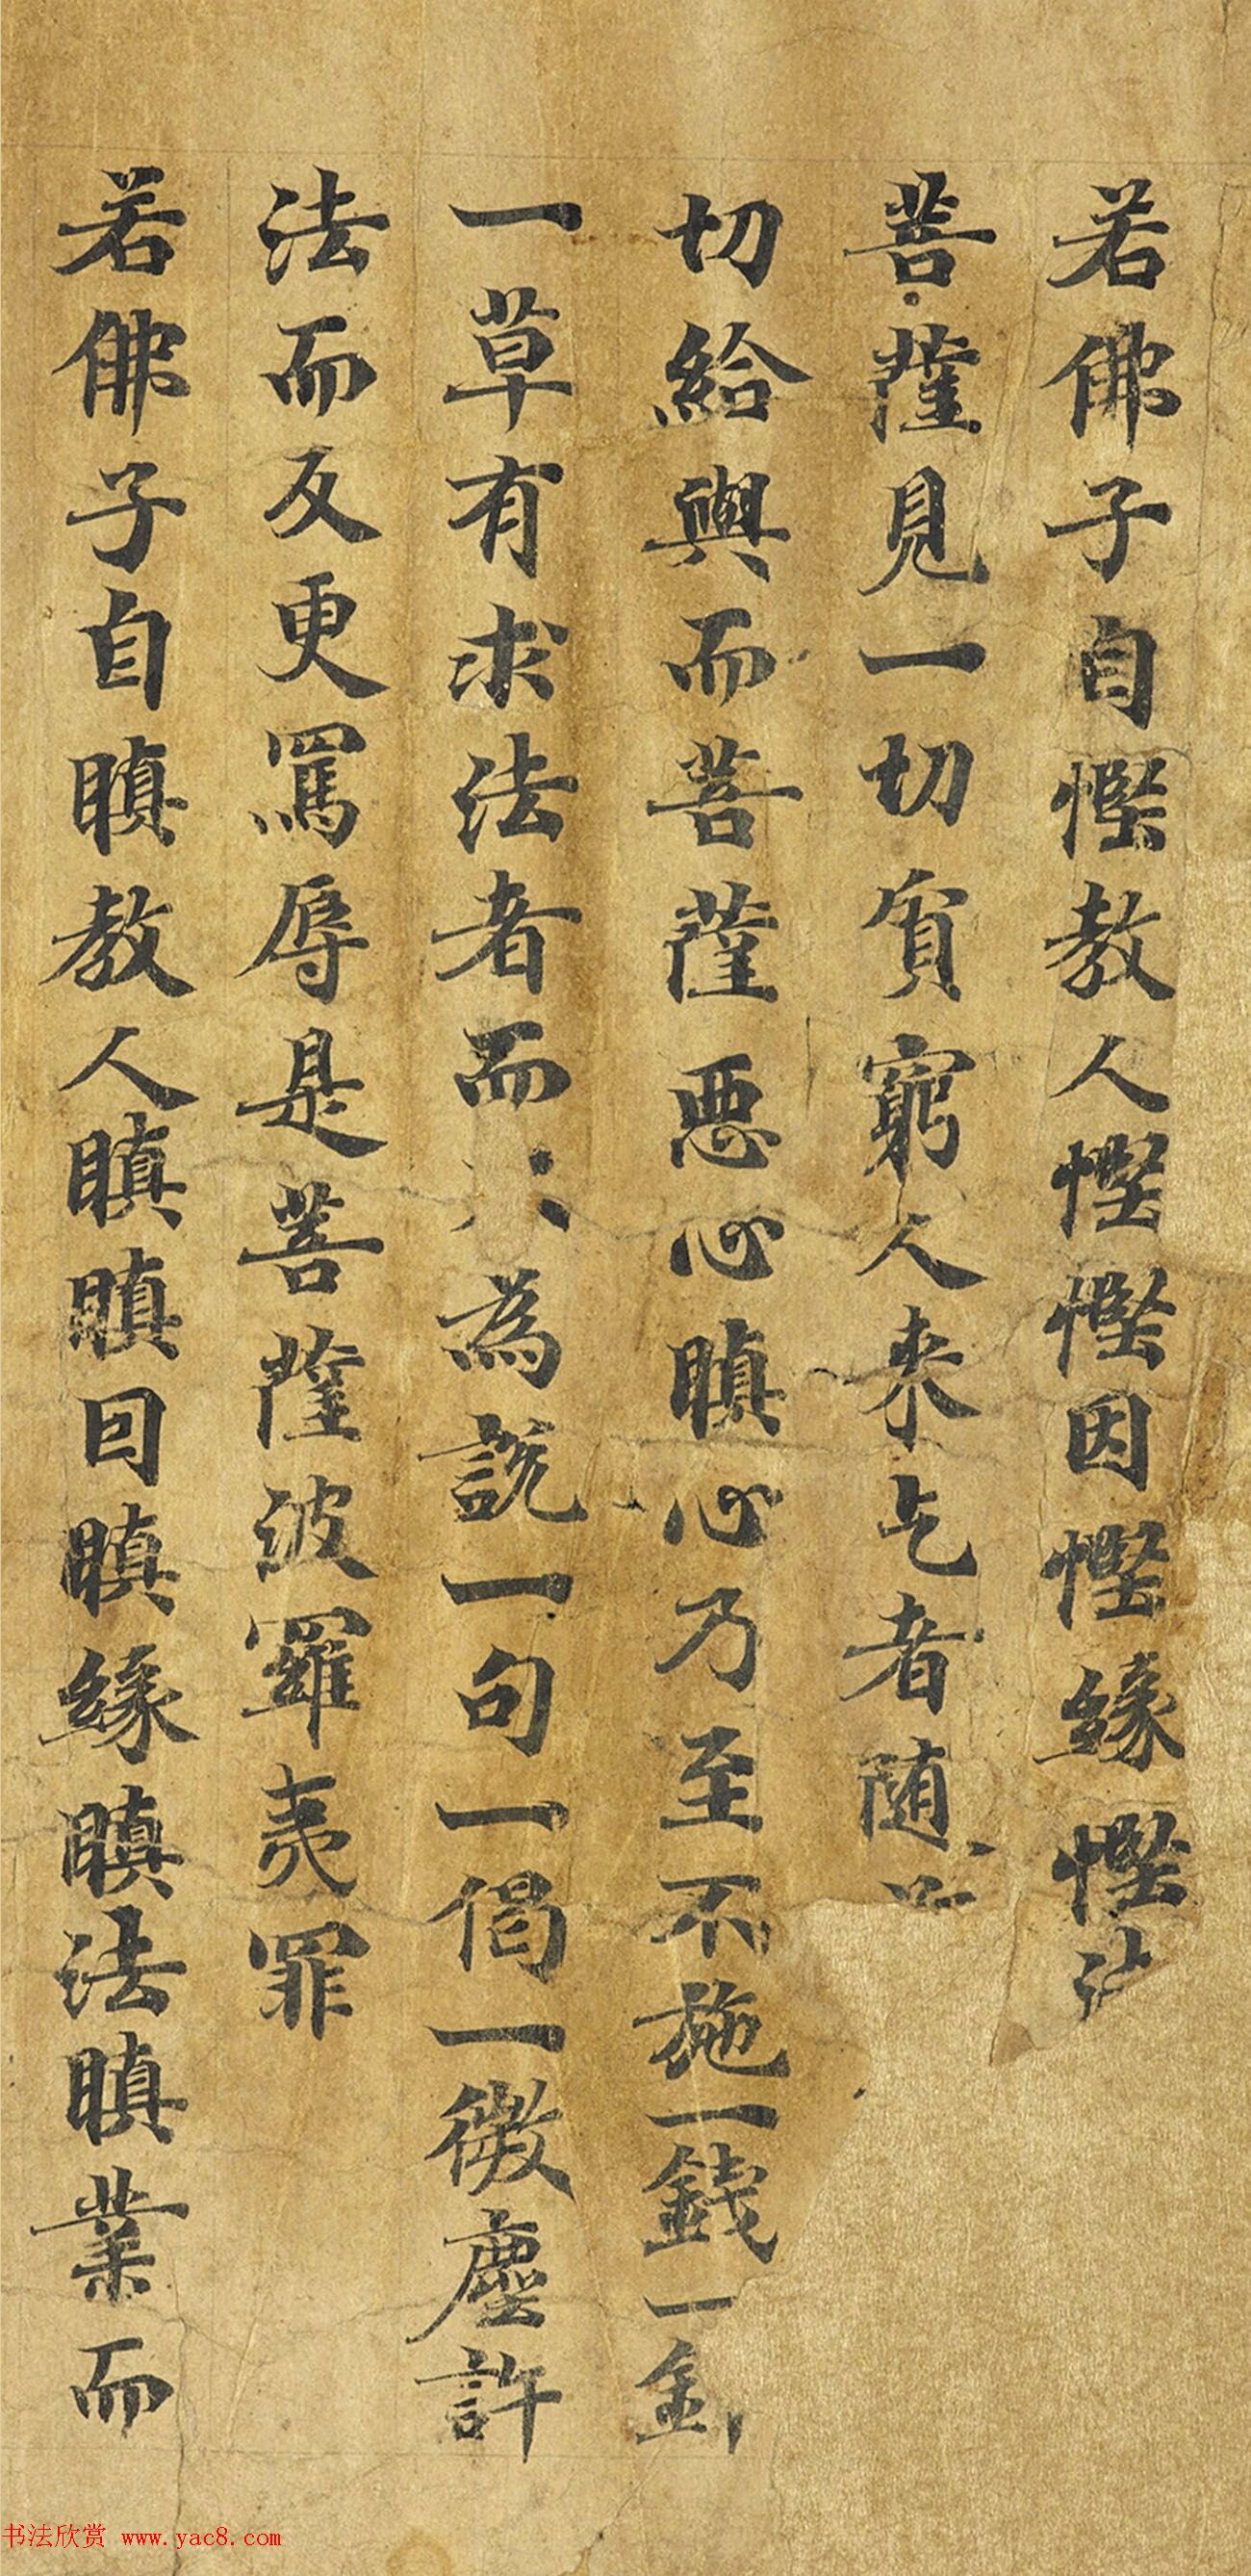 若佛子自慳教人慳慳因慳緣慳法
菩薩見一切貧窮人来乞者随
切給與而菩薩惡心瞋心乃至不施一錢一針
一草有求法者而不為說一句一偈一微塵許
法而反更罵辱是菩薩波羅夷罪
若佛子自瞋教人瞋瞋因瞋緣瞋法瞋業而
书法欣赏 www.yac8.com